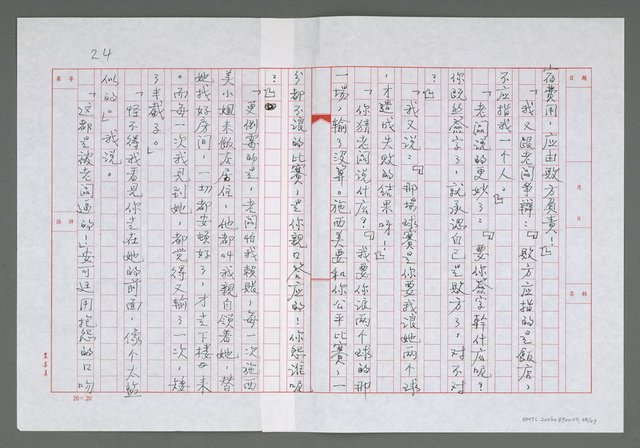 24
宿費用,應由敗方負責!』
「我又跟老闆爭辯:『敗方應指的是飯店,
不應指我一個人。』
「老闆說的更妙了:『要你簽字幹什麼呢?
你既然簽字了,就承認自已是敗方了,對不對
?』
「我又說:『那場球賽是你要我讓她兩个球
,才造成失敗的結果呀!』
「你猜老闆說什麼?『我要你讓兩个球的那
一場,輸了沒算。施西美要和你公平比賽,一
分都不讓的比賽,是你親口答應的!你怨誰呢
?』
「更倒霉的是,老闆怕我賴賬,每一次施西
美小姐來飯店居住,他都叫我親自領着她,替
她找好房間,一切都安頓好了,才走下樓來
。而每一次我見到她,都覺得又輸了一次,矮
了半截了。」
「怪不得我看見你走在她的前面,像个太監
似的。」我說。
「這都是被老闆逼的!」安可廷用抱怨的口吻
20×20
NMTL